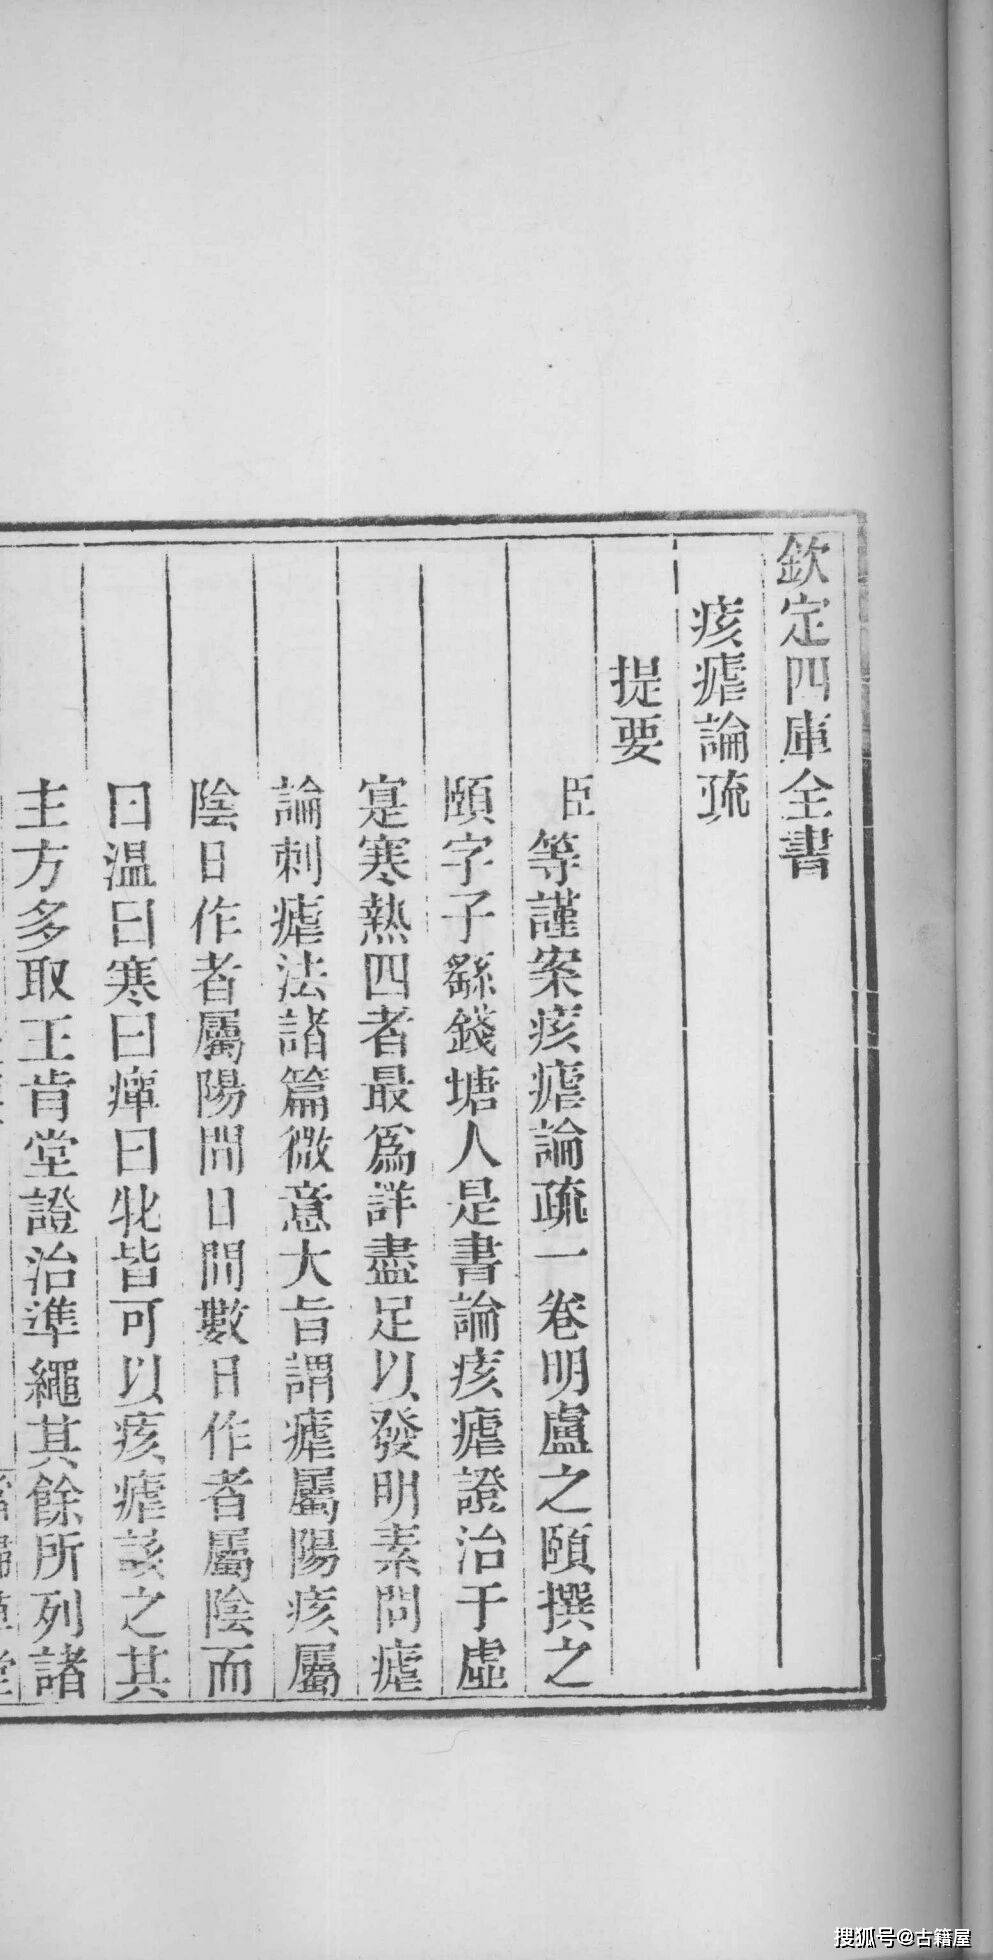 欽定四庫全書
痎瘧論疏
提要
臣等謹案痎瘧論疏一卷明盧之頤撰之
頤字子繇錢塘人是書論痎瘧證治于虛
寔寒熱四者最為詳盡足以發明素問瘧
論刺瘧法諸篇微意大旨謂瘧屬陽痎屬
陰日作者屬陽間日間數日作者屬陰而
曰温曰寒曰癉曰牝皆可以痎瘧該之其
主方多取王肯堂證治準繩其餘所列諸
搜狐号@古籍屋